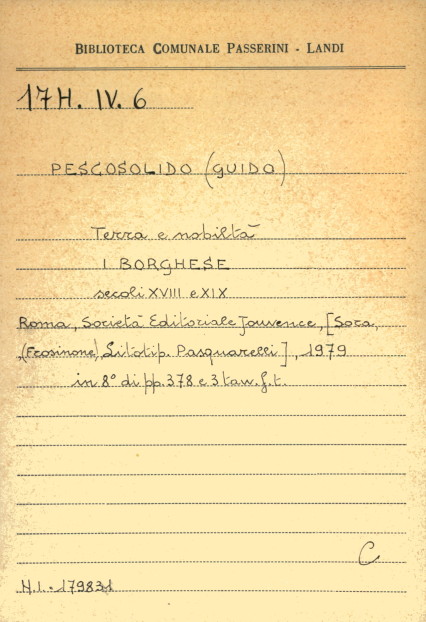 BIBLIOTECA COMUNALE PASSERINI - LANDI
17H. IV. 6
PESCOSOLIDO (GUIDO)
Terra e nobiltà
I BORGHESE
secoli XVIII e XIX
Roma, Società Editoriale Jouvence, [Sora,
(Frosinone), Litotip. Pasquarelli], 1979
in 8° di pp. 378 e 3 tav. f. t.
C
N.I. - 179831